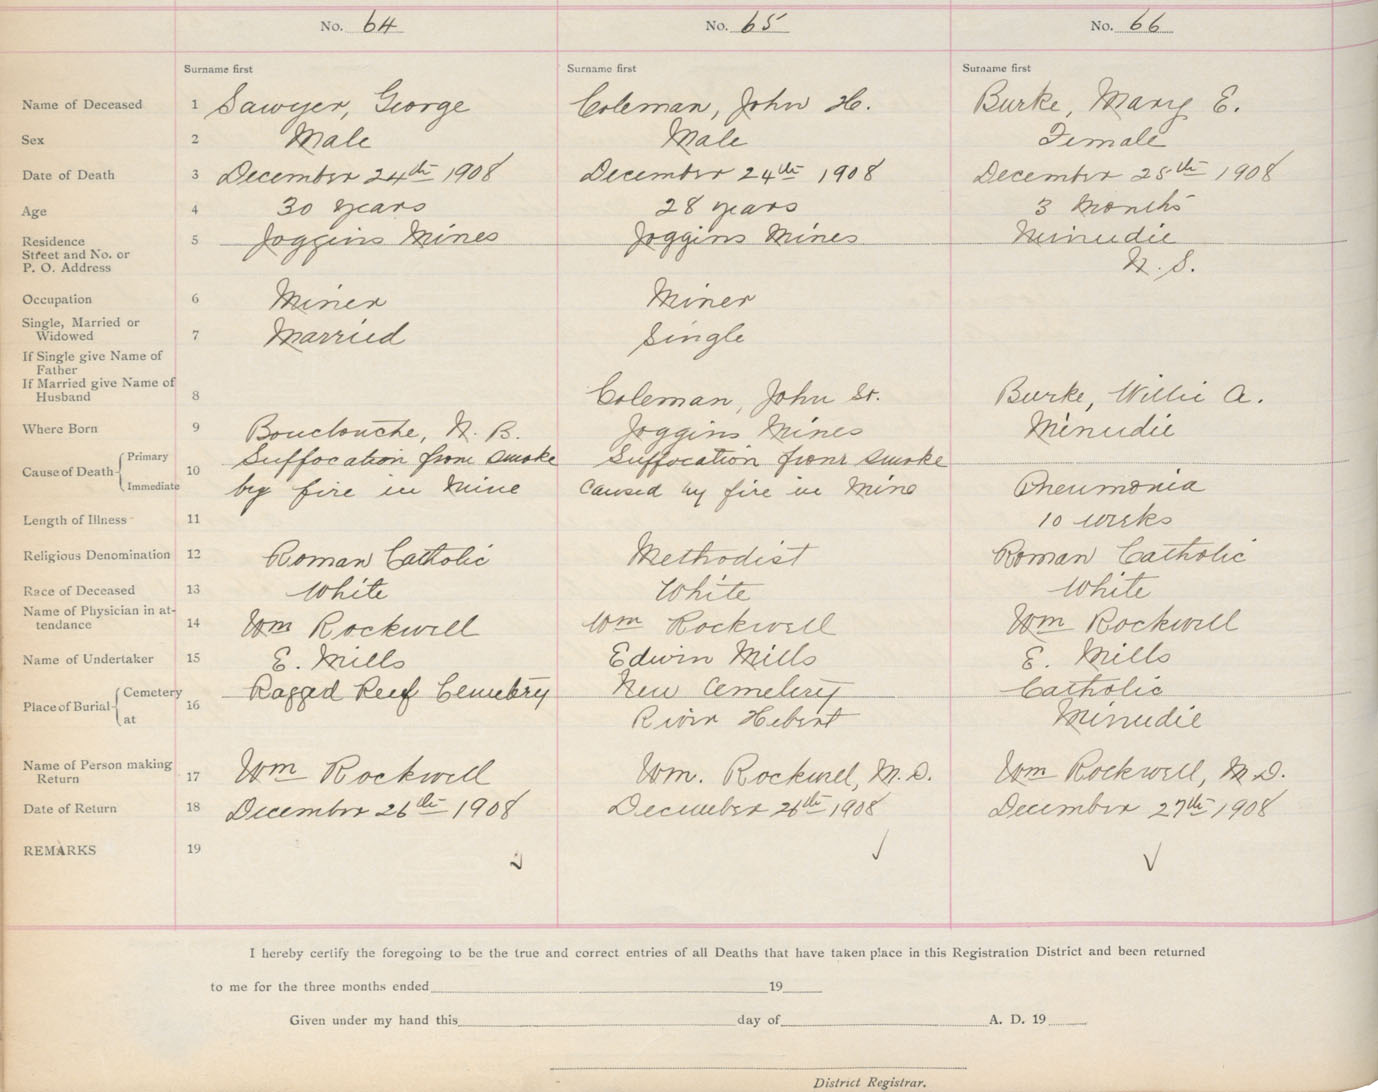 No. 64 No. 65 No. 66
Surname first Surname first Surname first
Name of Deceased 1 Sawyer, George Coleman, John H. Burke, Mary E.
Sex 2 Male Male Female
Date of Death 3 December 24th 1908 December 24th 1908 December 25th 1908
Age 4 30 years 28 years 3 Months
Residence Street and No. or P. O. Address 5 Joggins Mines Joggins Mines Minudie
N. S.
Occupation 6 Miner Miner
Single, Married or Widowed 7 Married Single
If Single give Name of Father
If Married give Name of Husband 8 Coleman, John Sr. Burke, Willie A.
Where Born 9 Bouctouche, N. B. Joggins Mines Minudie
Cause of Death Primary 10 Suffocation from smoke Suffocation from smoke
Immediate by fire in Mine caused by fire in Mine Pneumonia
Length of Illness 11 10 weeks
Religious Denomination 12 Roman Catholic Methodist Roman Catholic
Race of Deceased 13 White White White
Name of Physician in attendance 14 Wm Rockwell Wm Rockwell Wm Rockwell
Name of Undertaker 15 E. Mills Edwin Mills E. Mills
Place of Burial Cemetery 16 Ragged Reef Cemetery New Cemetery Catholic
at River Hebert Minudie
Name of Person making Return 17 Wm Rockwell Wm. Rockwell, M.D. Wm Rockwell, M.D.
Date of Return 18 December 26th 1908 December 26th 1908 December 27th 1908
REMARKS 19
I hereby certify the foregoing to be the true and correct entries of all Deaths that have taken place in this Registration District and been returned
to me for the three months ended 19
Given under my hand this day of A. D. 19
District Registrar.